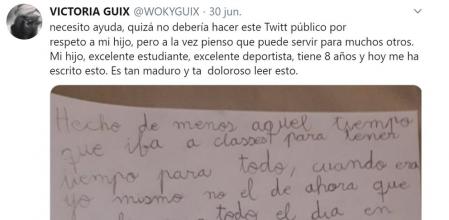 VICTORIA GUIX @WOKYGUIX · 30 jun.
necesito ayuda, quizá no debería hacer este Twitt público por
respeto a mi hijo, pero a la vez pienso que puede servir para muchos otros.
Mi hijo, excelente estudiante, excelente deportista, tiene 8 años y hoy me ha
escrito esto. Es tan maduro y ta doloroso leer esto.
Hecho de menos aquel tiempo
que iba a classes para tener
tiempo para todo, cuando era
yo mismo no el de ahora que
todo el día en